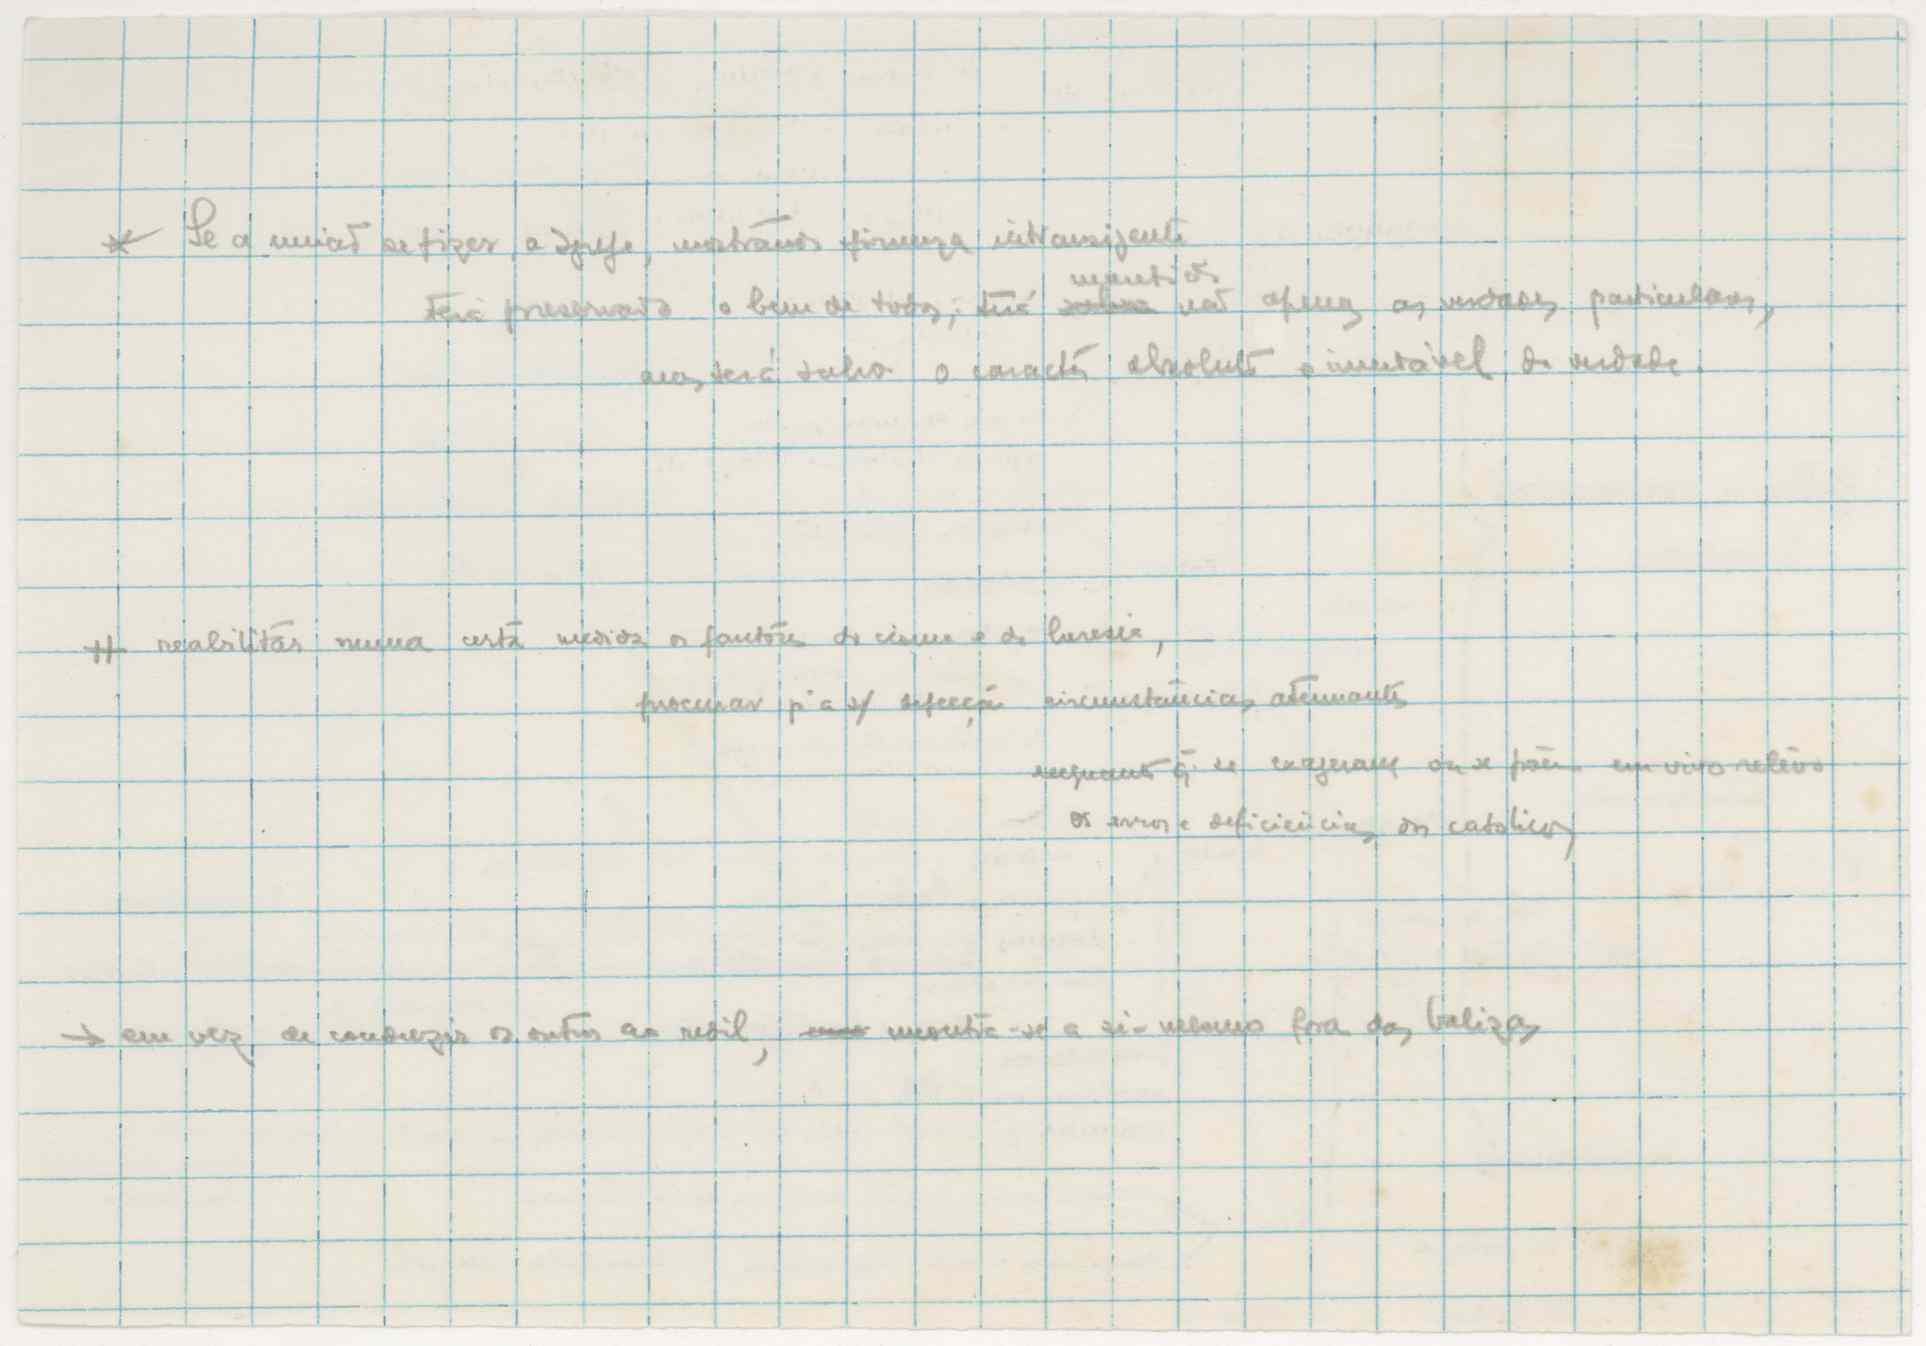 * Se a união se fizer, a Igreja, mostrando firmeza intransigente
mantido
terá preservado o bem de todos; terá salvo não apenas as verdades particulares,
mas terá salvo o caracter absoluto e imutável da verdade.
# reabilitar numa certa medida os fautores do cisma e da heresia,
procurar p'a a s/ defecção circunstâncias atenuantes
enquanto q̃ se exageram ou se põem em vivo relêvo
os erros e deficiências dos católicos
→ em vez de conduzir os outros ao redil, encontra-se a si-mesmo fora das balizas